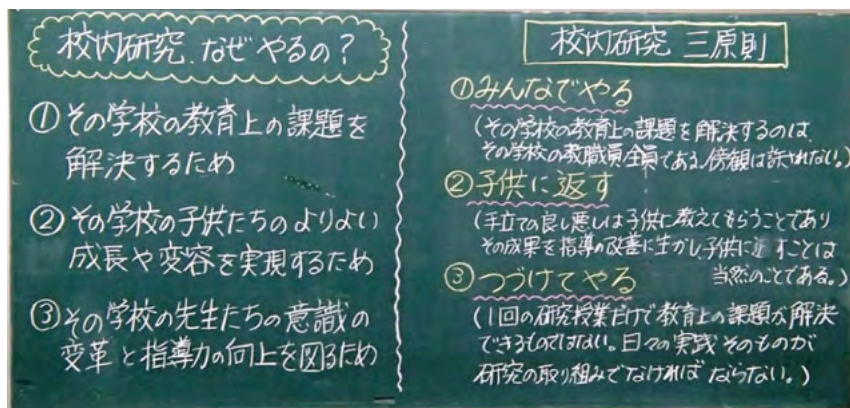 校内研究、なぜやるの？
①その学校の教育上の課題を
解決するため
②その学校の子供たちのよりよい
成長や変容を実現するため
③その学校の先生たちの意識の
変革と指導力の向上を図るため
校内研究 三原則
①みんなでやる
(その学校の教育上の課題を解決するのは、
その学校の教職員全員である。傍観は許されない。)
②子供に返す
(手立ての良し悪しは子供に教えてもらうことであり
その成果を指導の改善に生かし、子供に返すことは
当然のことである。)
③つづけてやる
(1回の研究授業だけで教育上の課題が解決
できるものではない。日々の実践そのものが
研究の取り組みでなければならない。)